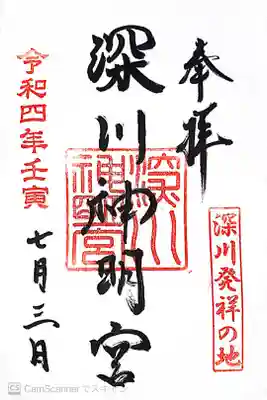 奉拝
深川発祥の地
深川神明宮
深川
神明宮
令和四年壬寅
七月三日
CS CamScannerでスキャン